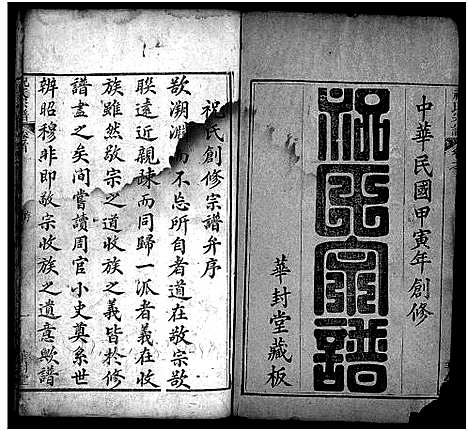 中華民國甲寅年創修
祝氏宗譜
華封堂藏板
祝氏創修宗譜弁序
欲溯淵而不忘所自者道在敬宗欲
聯遠近親疎而同歸一派者義在收
族雖然敬宗之道收族之義皆於修
譜盡之矣間嘗讀周官小史奠系世
辨昭穆非即敬宗收族之遺意歟譜